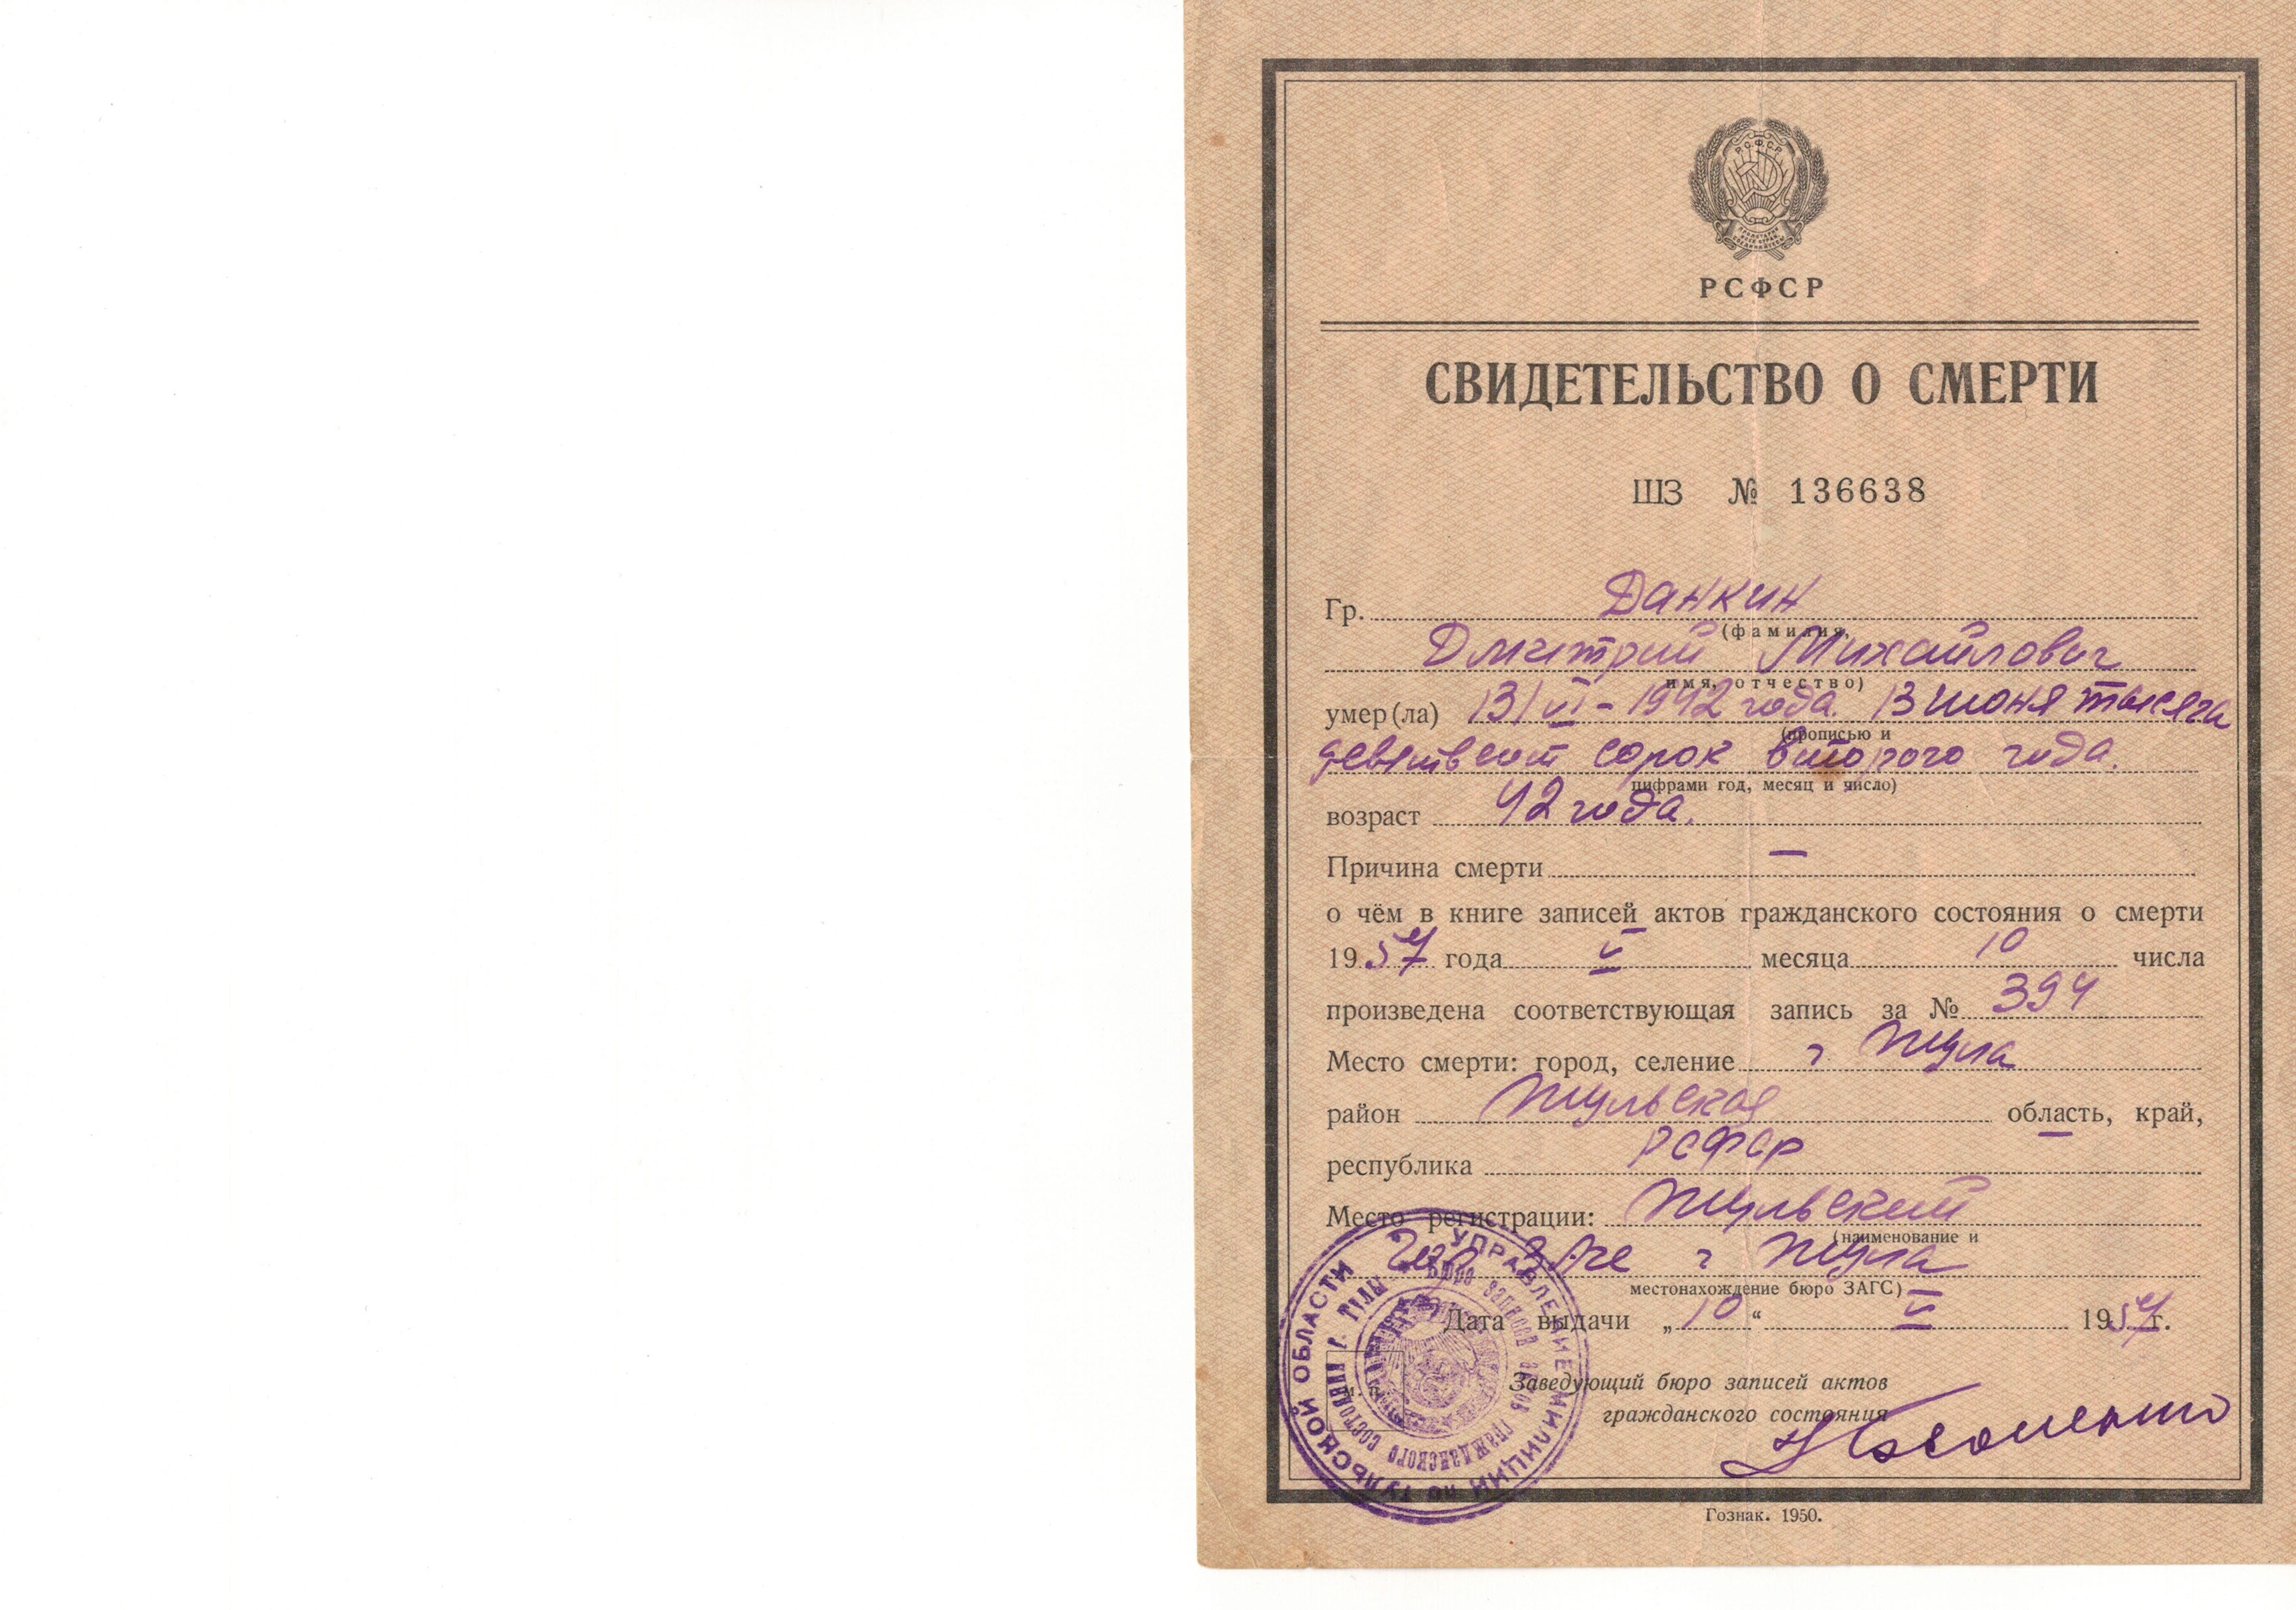 Р.С.Ф.С.Р.
РСФСР
СВИДЕТЕЛЬСТВО О СМЕРТИ
ШЗ № 136638
Гр. Данкин
(фамилия,
Дмитрий Михайлович
имя, отчество)
умер(ла) 13/VI - 1942 года. 13 июня тысяча
(прописью и
девятьсот сорок второго года.
цифрами год, месяц и число)
возраст 42 года.
Причина смерти —
о чём в книге записей актов гражданского состояния о смерти
1957 года V месяца 10 числа
произведена соответствующая запись за № 394
Место смерти: город, селение г. Тула
район Тульская область, край,
республика РСФСР
Место регистрации: Тульский
(наименование и
Загс г Тула
местонахождение бюро ЗАГС)
Дата выдачи „10“ V 1957г.
Заведующий бюро записей актов
гражданского состояния
м. п.
УПРАВЛЕНИЕ МИЛИЦИИ ПО ТУЛЬСКОЙ ОБЛАСТИ
БЮРО ЗАПИСЕЙ АКТОВ ГРАЖДАНСКОГО СОСТОЯНИЯ Г. ТУЛЫ
Гознак. 1950.